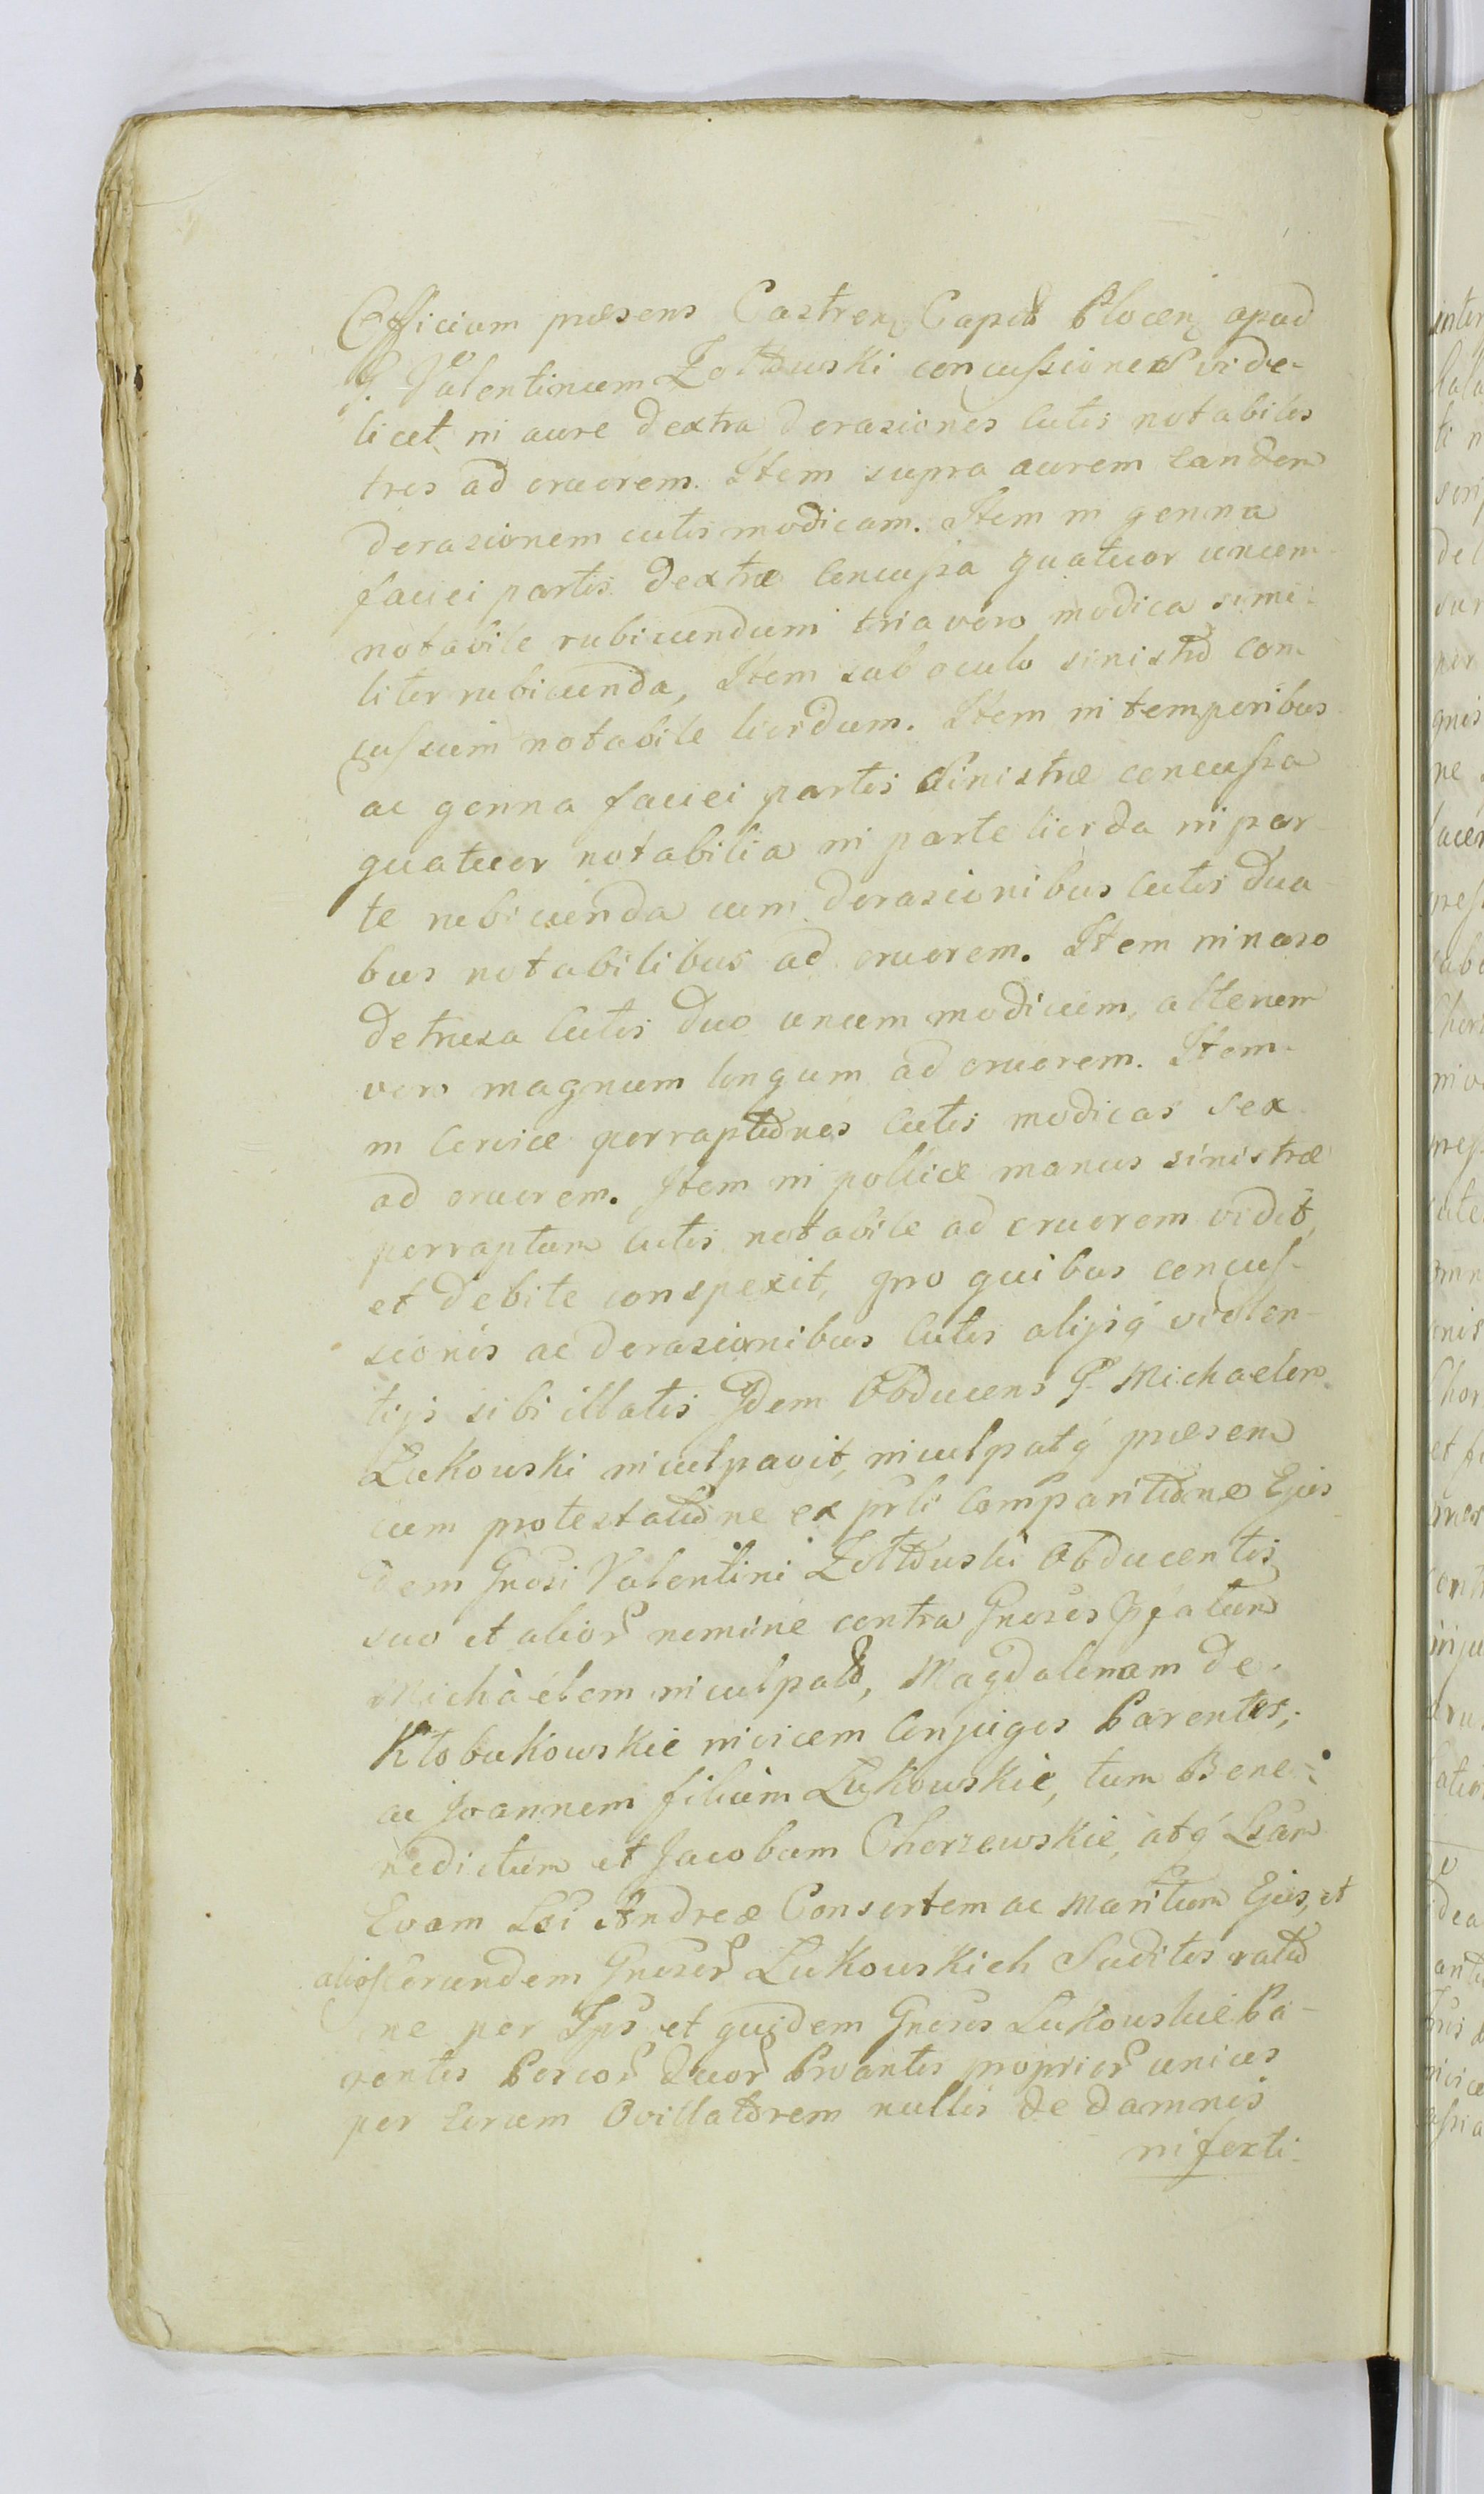 Officium præsens Castren Capitl Plocen apud
G. Valentinum Zołtowski concussiones vide-
licet in aure dextra derasiones cutis notabiles
tres ad cruorem. Item supra aurem eandem
derasionem cutis modicam. Item in genna
faciei partis dextræ concussa quatuor unum
notabile rubicundum tria vero modica simi-
liter rubicunda, Item sub oculo sinistro con-
cussum notabile lividum. Item in temporibus
ac genna faciei partis sinistræ concussa
quatuor notabilia in parte livida in par-
te rubicunda cum derasionibus cutis dua-
bus notabilibus ad cruorem. Item in naso
detrusa cutis duo unum modicum, alterum
vero magnum longum ad cruorem. Item
in cervice perraptiones cutis modicas sex
ad cruorem. Item in pollice manus sinistræ
perraptum cutis notabile ad cruorem vidit,
et debite conspexit, pro quibus concus-
sionis ac derasionibus cutis alijsq violen-
tijs sibi illatis Idem Obducens G. Michaelem
Łukowski inculpavit, inculpatq præsens
cum protestatione ex prli comparitione Ejus-
dem Gnosi Valentini Zołtowski Obducentis
suo et alior nomine contra Gnosos Ipfatum
Michaelem inculpat, Magdalenam de
Kłobukowskie invicem Conjuges Parentes,
ac Joannem filium Łukowskie, tum Bene-
nedictum et Jacobum Chorzewskie, atq Lsam
Evam Lsi Andreæ Consortem ac Maritum Ejus, et
alios Eorundem Gnosor Łukowskich Suditos ratio
ne per Ips et quidem Gnosos Łukowskie Pa-
rentes Porcor Suor Provantes proprior unius
per Eorum Ovillatorem nullis de damnis
in fexti-